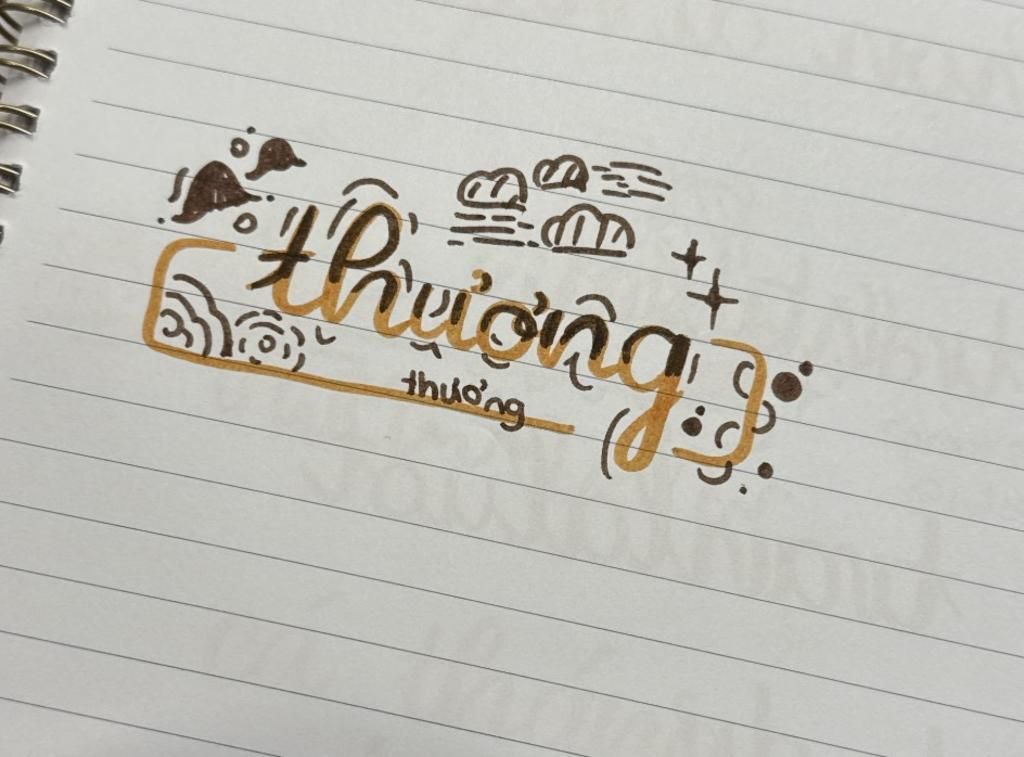 thương
thương